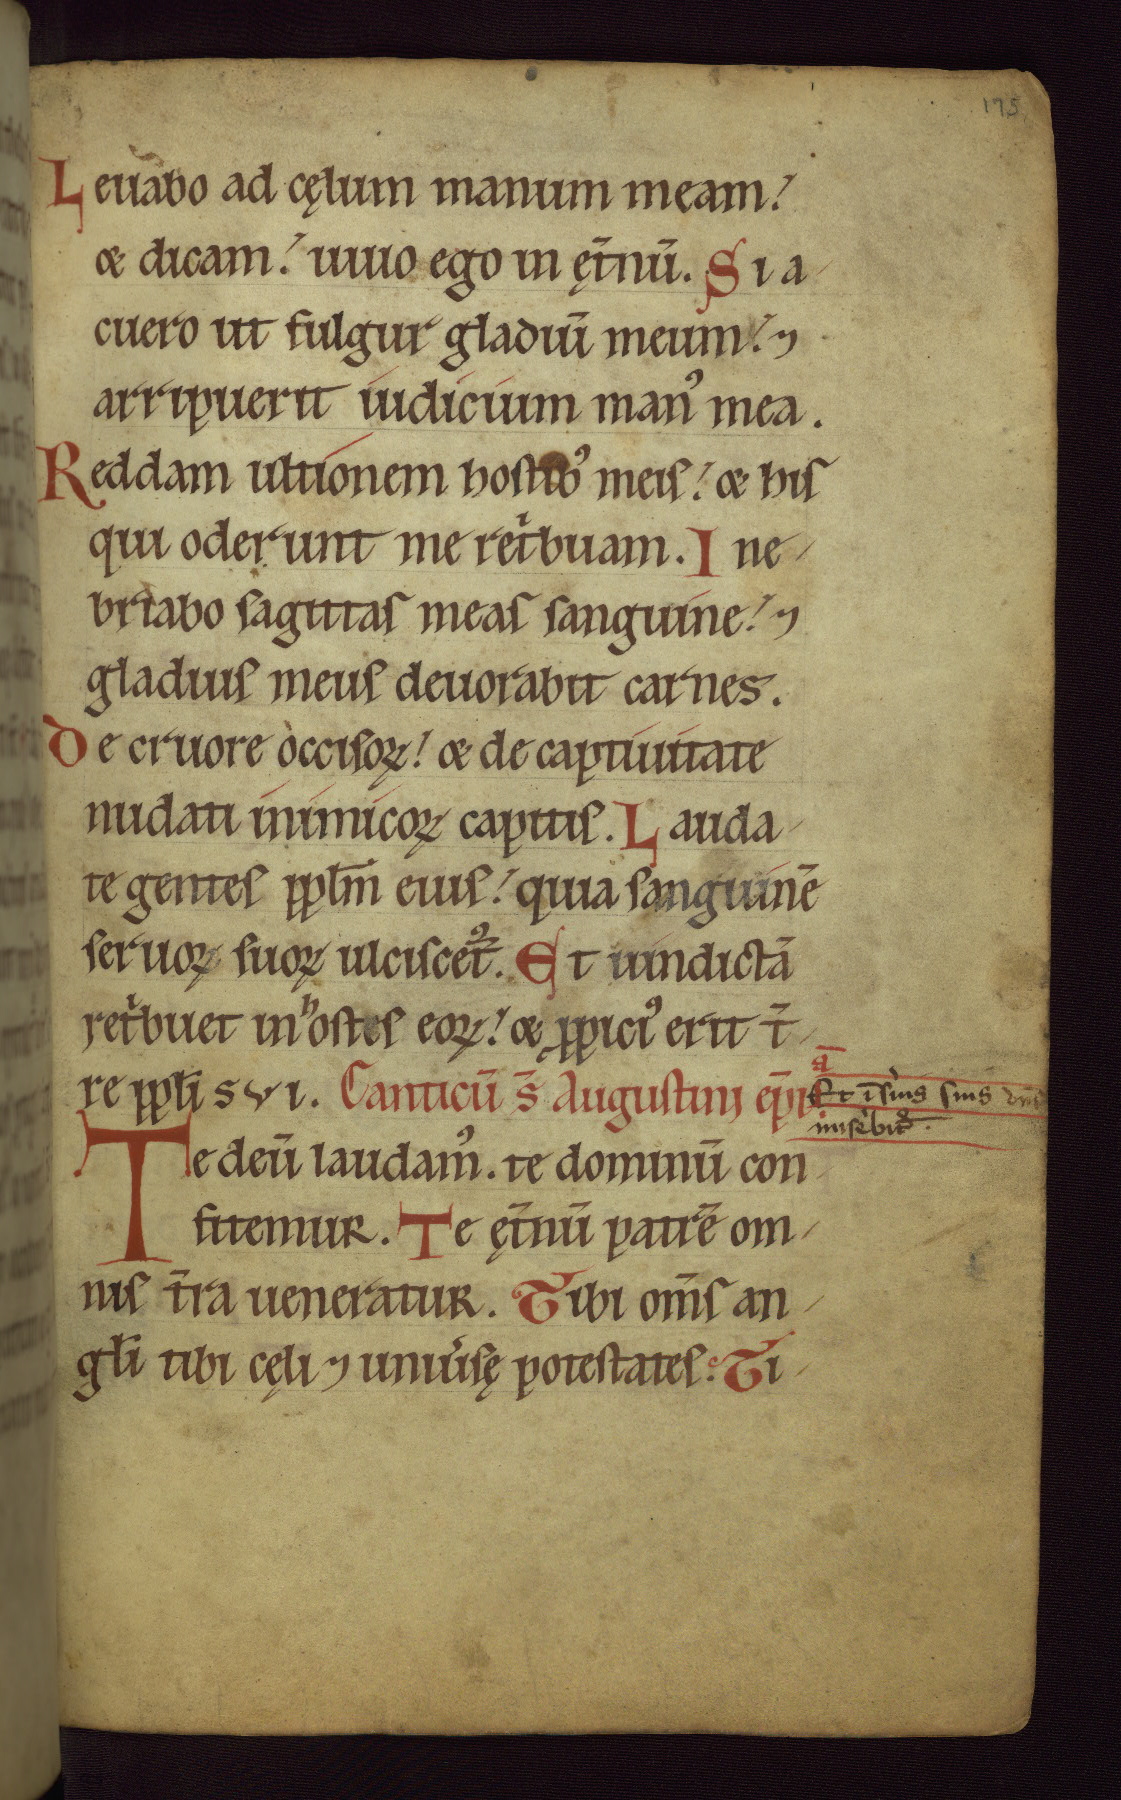 195
Leuabo ad cęlum manum meam!
& dicam! uiuo ego in ęt̄nū. Si a
cuero ut fulgur gladiū meum! ⁊
arripuerit iudicium manꝰ mea.
Reddam ultionem hostibꝰ meis! & his
qui oderunt me ret'buam. Ine
briabo sagittas meas sanguine! ⁊
gladius meus deuorabit carnes.
De cruore occisoꝝ! & de captiuitate
nudati inimicoꝝ capitis. Lauda
te gentes ppl̄m eius! quia sanguinē
seruoꝝ suoꝝ ulciscet᷑. Et uindictā
ret'buet in hostes eoꝝ! & ꝓpiciꝰ erit t̄
re ppl̄i sui. Canticū s̄ Augustini ep̄i
Et ī s̓uis suis
mis̓ebit᷑.
Te deū laudamꝰ. te dominū con
fitemur. Te ęt̄nū patrē om
nis t̄ra ueneratur. Tibi om̄s an
gl̄i tibi cęli ⁊ uniu̓sę potestates. Ti